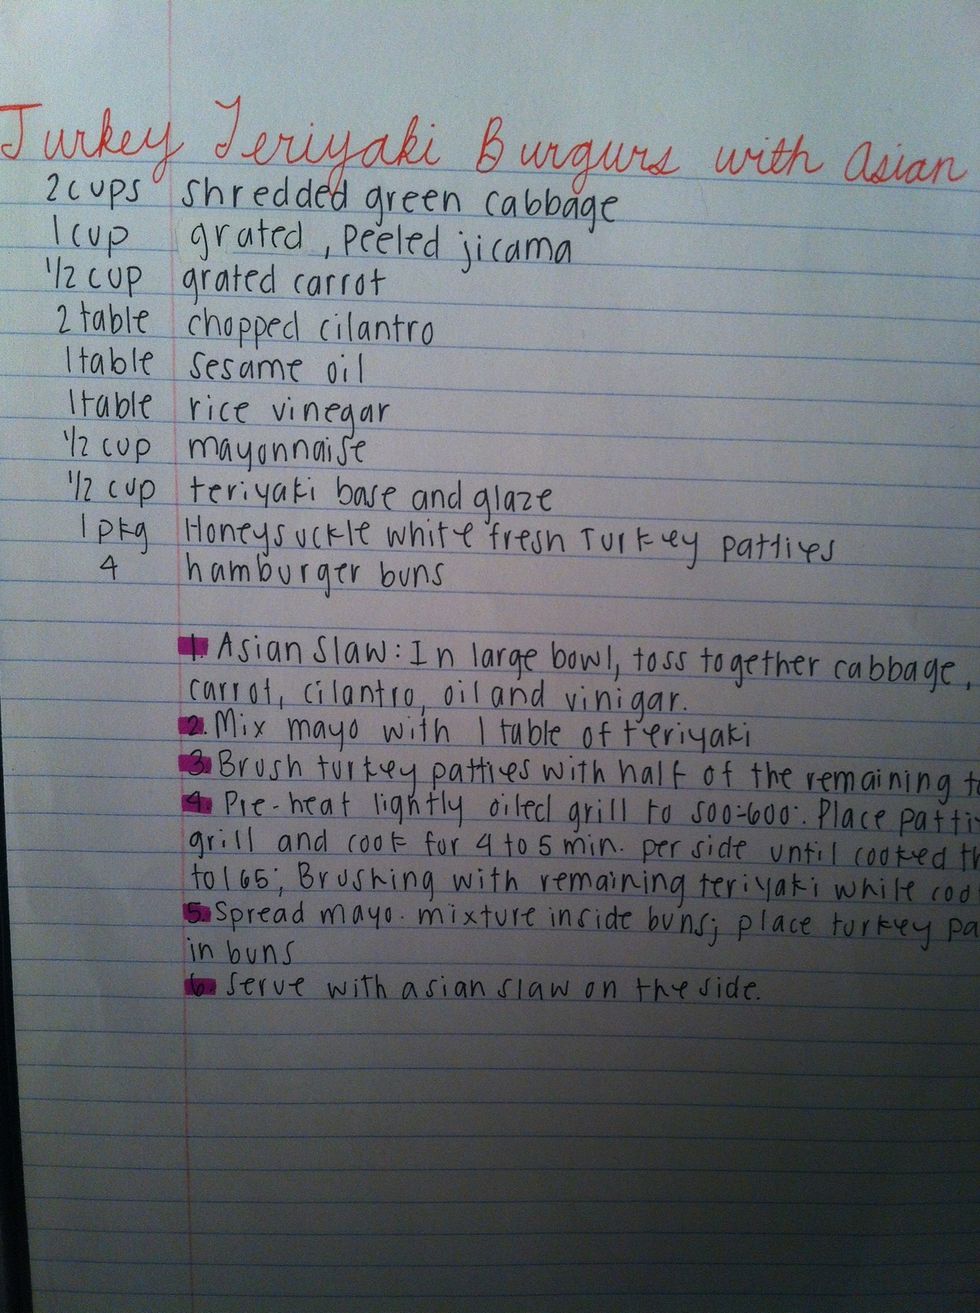 Turkey Teriyaki Burgurs with asian
2 cups shredded green cabbage
1 cup grated, peeled jicama
1/2 cup grated carrot
2 table chopped cilantro
1 table sesame oil
1 table rice vinegar
1/2 cup mayonnaise
1/2 cup teriyaki base and glaze
1 pkg Honeysuckle white fresh Turkey pattiyes
4 hamburger buns
1. Asian Slaw: In large bowl, toss together cabbage,
carrot, cilantro, oil and vinigar.
2. Mix mayo with 1 table of teriyaki
3. Brush turkey pattyes with half of the remaining te
4. Pre-heat lightly oiled grill to 500-600°. Place patti
grill and cook for 4 to 5 min. per side until cooked th
to 165°, Brushing with remaining teriyaki while coo
5. Spread mayo. mixture inside buns; place turkey pa
in buns
6. Serve with asian slaw on the side.